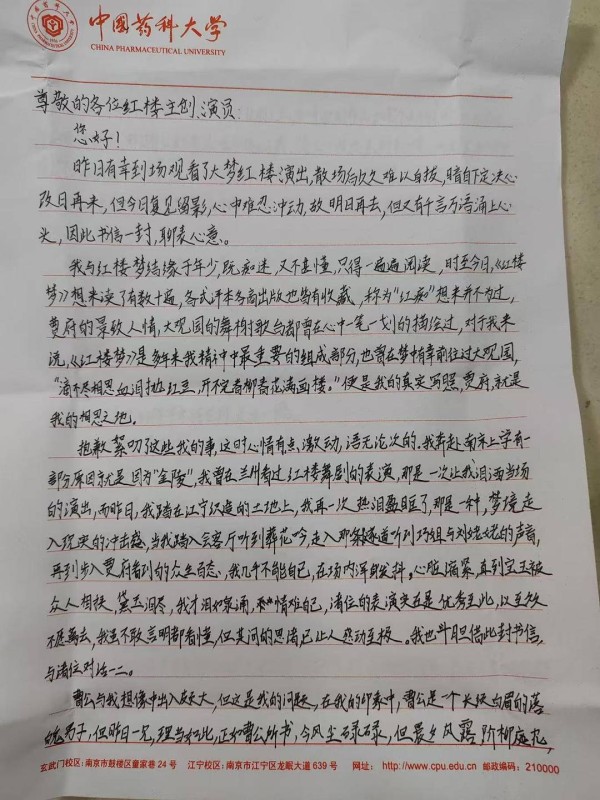 中国药科大学
CHINA PHARMACEUTICAL UNIVERSITY
尊敬的各位红楼主创、演员
您好！
昨日有幸到场观看了大梦红楼演出，散场后久久难以自拔，暗自下定决心
改日再来，但今日复见留影，心中难忍冲动，故明日再去，但又有千言万语涌上心
头，因此书信一封，聊表心意。
我与红楼梦结缘于年少，既痴迷，又不甚懂，只得一遍遍阅读，时至今日，《红楼
梦》想来读了有数十遍，各式评本各商出版也皆有收藏，称为"红痴"想来并不为过，
贾府的景致人情，大观园的舞榭歌台都曾在心中一笔一划的描绘过，对于我来
说，《红楼梦》是多年来我精神中最重要的组成部分，也曾在梦中有幸前往过大观园，
"滴不尽相思血泪抛红豆，开不完春柳春花满画楼。"便是我的真实写照，贾府，就是
我的相思之地。
抱歉絮叨了这些我的事，这时心情有点激动，语无论次的。我奔赴南京上学有一
部分原因就是因为"金陵"，我曾在兰州看过红楼舞剧的表演，那是一次让我泪洒当场
的演出，而昨日，我踏在江宁织造的土地上，我再一次热泪盈眶了，那是一种，梦境走
入现实的冲击感，当我踏入会客厅听到葬花吟，走入那条隧道听到巧姐与刘姥姥的声音，
再到步入贾府看到的众生百态，我几乎不能自已，在场内浑身发抖。心脏痛紧，直到宝玉被
众人相扶，黛玉泪尽，我才泪如泉涌，情难自已，诸位的表演实在是优秀至此，以至久
不愿离去，我虽不敢言明都看懂，但其间的思绪已让人悲动至极。我也斗胆借此封书信，
与诸位对话一二。
曹公与我想像中出入较大，但这是我的问题，在我的印象中，曹公是一个长须白眉的落
魄男子，但昨日一见，理当如此，正如曹公所书，今风尘碌碌，但晨夕风露阶柳庭花，
玄武门校区：南京市鼓楼区童家巷 24 号 江宁校区：南京市江宁区龙眠大道 639 号 网址：http://www.cpu.edu.cn 邮政编码：210000